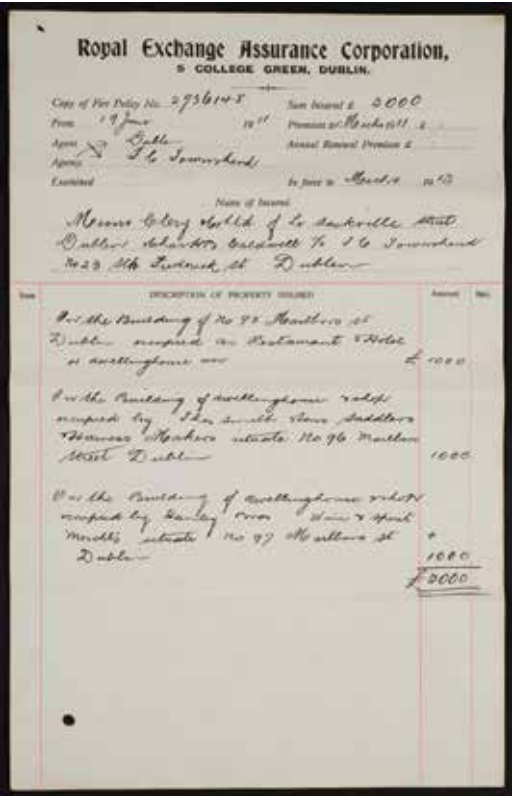 Royal Exchange Assurance Corporation,
5 COLLEGE GREEN, DUBLIN.
Copy of Fire Policy No. 2936148 Sum Insured £ 3000
From 19 June 1911 Premium to March 1911 £
Agent Dublin Annual Renewal Premium £
Agency T C Townshend
Examined In force to March 19
Name of Insured
Messrs Clery & Co Ltd of Lr Sackville Street
Dublin Charles Caldwell T C Townshend
No 23 Frederick St Dublin
Item DESCRIPTION OF PROPERTY INSURED Amount
On the Building of No 95 Marlboro st
Dublin occupied as Restaurant & Hotel
or dwellinghouse £ 1000
On the Building of dwellinghouse & shop
occupied by Thos Smith Sons Saddlers
Harness Makers situate No 96 Marlboro
Street Dublin 1000
On the Building of dwellinghouse & shop
occupied by Bros Wine & Spirit
Merchts situate No 97 Marlboro st
Dublin 1000
£ 3000